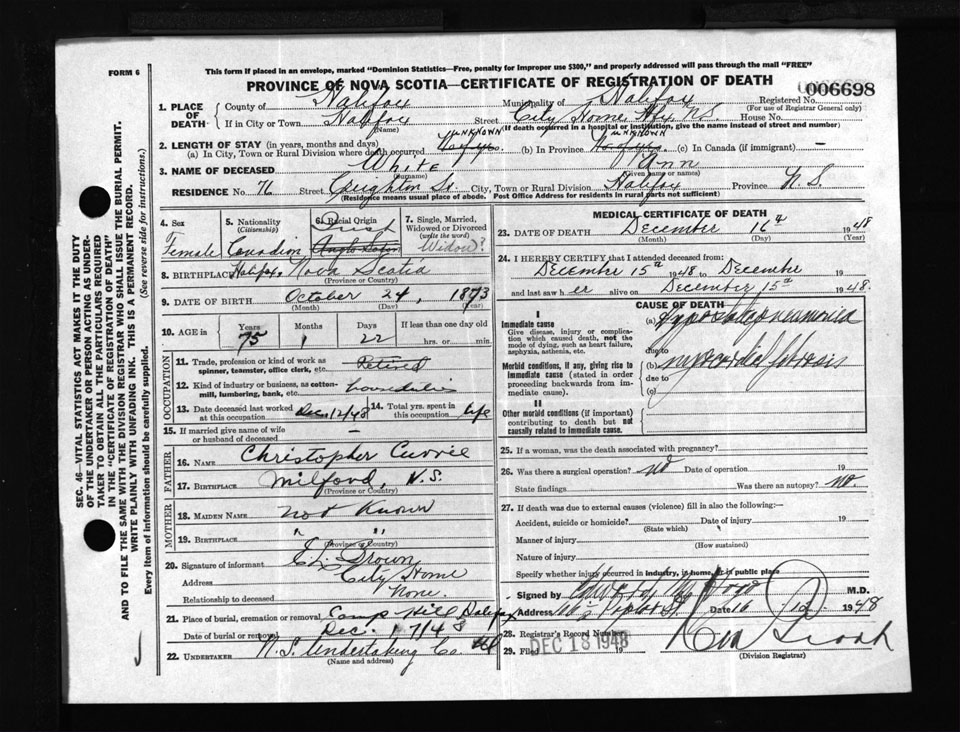 FORM 6
This form if placed in an envelope, marked "Dominion Statistics—Free, penalty for improper use $300," and properly addressed will pass through the mail "FREE"
PROVINCE OF NOVA SCOTIA—CERTIFICATE OF REGISTRATION OF DEATH
006698
1. PLACE OF DEATH County of Halifax Municipality of Halifax Registered No. (For use of Registrar General only)
If in City or Town Halifax (Name) Street City Home, Hfx, N.S. House No.
(If death occurred in a hospital or institution, give the name instead of street and number)
2. LENGTH OF STAY (in years, months and days)
(a) In City, Town or Rural Division where death occurred UNKNOWN (b) In Province UNKNOWN (c) In Canada (if immigrant) —
3. NAME OF DECEASED White (Surname) Ann (Given name or names)
RESIDENCE No. 76 Street Creighton St. City, Town or Rural Division Halifax Province N.S.
(Residence means usual place of abode. Post Office Address for residents in rural parts not sufficient)
4. Sex Female
5. Nationality (Citizenship) Canadian
6. Racial Origin Irish Anglo Saxon
7. Single, Married, Widowed or Divorced (write the word) Widow?
8. BIRTHPLACE Halifax, Nova Scotia (Province or Country)
9. DATE OF BIRTH October (Month) 24, (Day) 1873 (Year)
10. AGE in Years 75 Months 1 Days 22 If less than one day old hrs. or min.
OCCUPATION
11. Trade, profession or kind of work as spinner, teamster, office clerk, etc. Retired
12. Kind of industry or business, as cotton-mill, lumbering, bank, etc.
13. Date deceased last worked at this occupation Dec 12/48
14. Total yrs. spent in this occupation life
15. If married give name of wife or husband of deceased —
FATHER
16. NAME Christopher Currie
17. BIRTHPLACE Milford, N.S. (Province or Country)
MOTHER
18. MAIDEN NAME not known
19. BIRTHPLACE " " (Province or Country)
20. Signature of informant Brown
Address City Home
Relationship to deceased None.
21. Place of burial, cremation or removal Camp Hill Halifax
Date of burial or removal Dec. 17/48
22. UNDERTAKER N.S. Undertaking Co.
(Name and address)
MEDICAL CERTIFICATE OF DEATH
23. DATE OF DEATH December (Month) 16th (Day) 1948 (Year)
24. I HEREBY CERTIFY that I attended deceased from:
December 15th 1948 to December 19
and last saw her alive on December 15th 1948.
CAUSE OF DEATH
I
Immediate cause
Give disease, injury or complication which caused death, not the mode of dying, such as heart failure, asphyxia, asthenia, etc.
(a)
due to
Morbid conditions, if any, giving rise to immediate cause (stated in order proceeding backwards from immediate cause).
(b) myocardial fibrosis
due to
(c)
II
Other morbid conditions (if important) contributing to death but not causally related to immediate cause.
25. If a woman, was the death associated with pregnancy?
26. Was there a surgical operation? No Date of operation 19
State findings Was there an autopsy? No.
27. If death was due to external causes (violence) fill in also the following:—
Accident, suicide or homicide? (State which) Date of injury 19
Manner of injury (How sustained)
Nature of injury
Specify whether injury occurred in industry, in home, or in public place
Signed by M.D.
Address Date 16 12 1948
28. Registrar's Record Number
29. Filed DEC 18 1948 19
(Division Registrar)
SEC. 46—VITAL STATISTICS ACT MAKES IT THE DUTY OF THE UNDERTAKER OR PERSON ACTING AS UNDERTAKER TO OBTAIN ALL THE PARTICULARS REQUIRED IN THE "CERTIFICATE OF REGISTRATION OF DEATH" AND TO FILE THE SAME WITH THE DIVISION REGISTRAR WHO SHALL ISSUE THE BURIAL PERMIT.
WRITE PLAINLY WITH UNFADING INK. THIS IS A PERMANENT RECORD.
Every item of information should be carefully supplied. (See reverse side for instructions.)